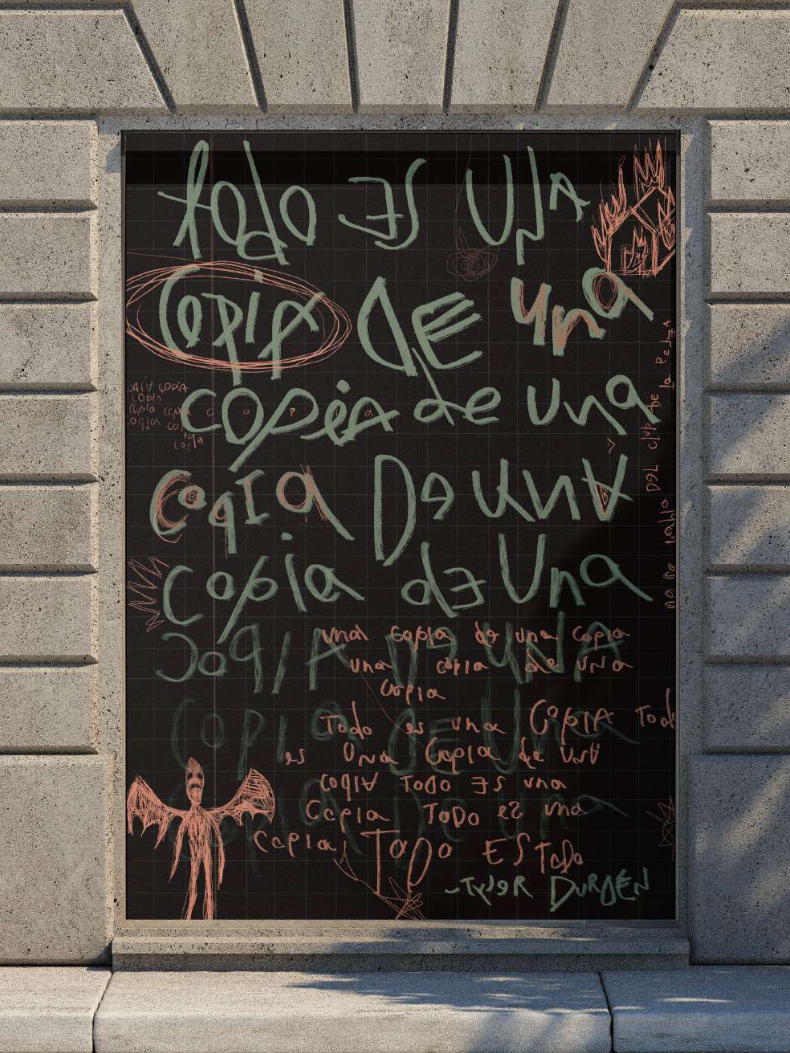 todo ES UNA
Copia DE una
copia de una
copia De unA
copia dE Una
COPIA DE UNA
COPIA DE Una
Copia De Una
copia copia
copia
copia copia
copia co
copia
una copia de una copia
una copia de una
copia
Todo es una COPIA Tod
es Una Copia de unA
copiA TODO ES una
Copia ToDo es una
Copia, ToDo ES Todo
-Tyler DURDEN
no se habla DEL club de la Pelea